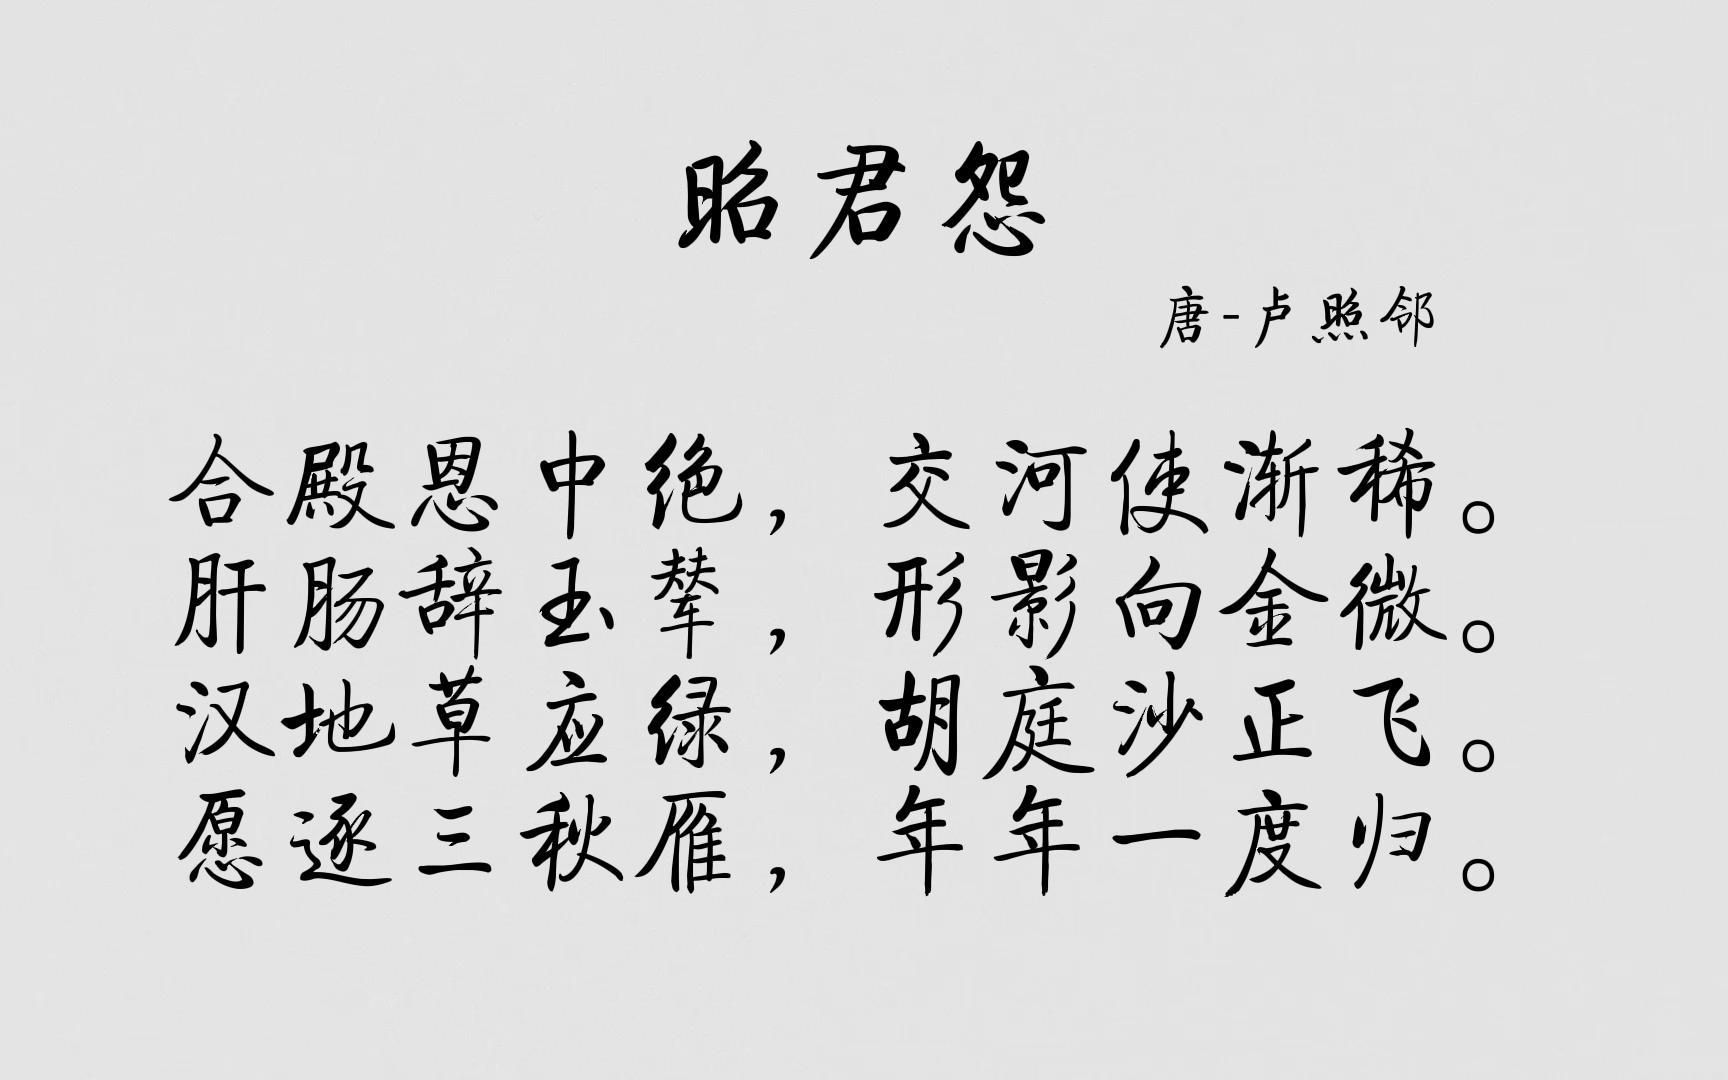 昭君怨
唐-卢照邻
合殿恩中绝，交河使渐稀。
肝肠辞玉辇，形影向金微。
汉地草应绿，胡庭沙正飞。
愿逐三秋雁，年年一度归。